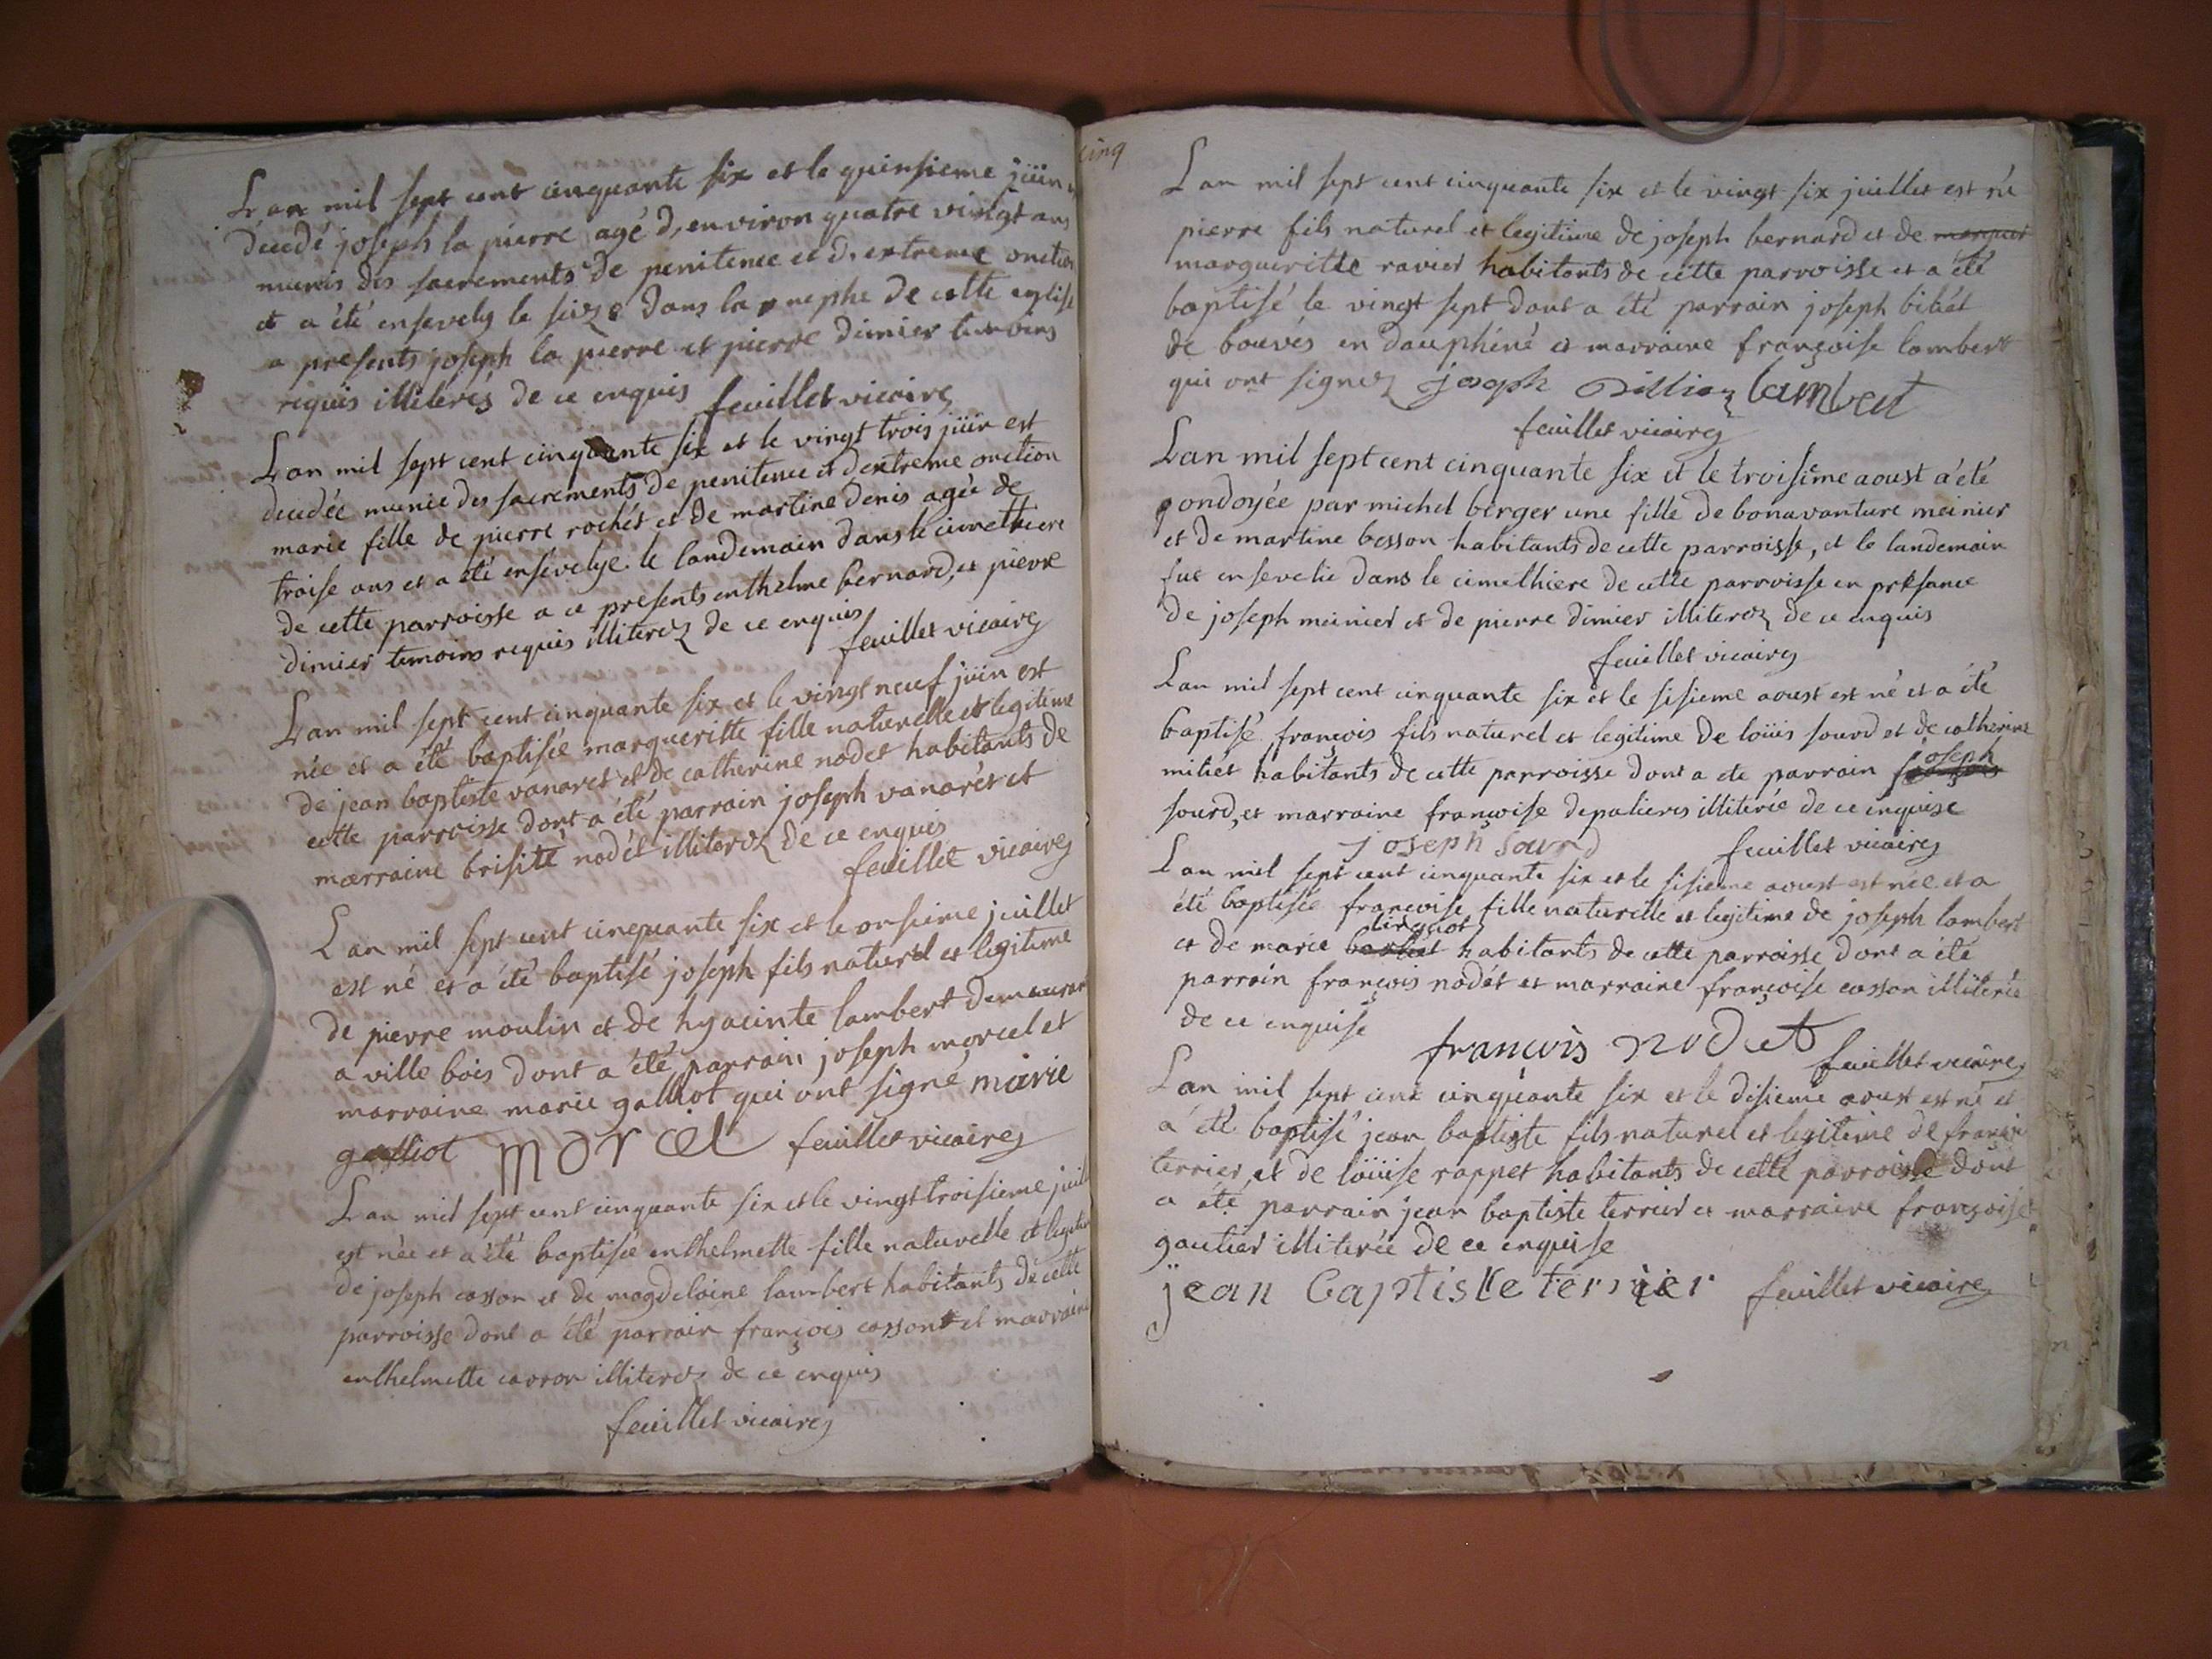 Lan mil sept cent cinquante six et le quinsieme jüin
décédé joseph la pierre agé d'environ quatre vingt ans
munis des sacrements de penitence et d'extreme onction
et a été ensevely le seize dans la nephe de cette eglise
a presents joseph la pierre et pierre dimier temoins
requis illiterés de ce enquis feuillet vicaire
Lan mil sept cent cinquante six et le vingt trois jüin est
decedée munie des sacrements de penitence et d'extreme onction
marie fille de pierre rochét et de martine denis agée de
troise ans et a été ensevelye le landemain dans le cimethiere
de cette parroisse a ce presents enthelme bernard, et pierre
dimier temoins requis illiterez de ce enquis
feuillet vicaire
Lan mil sept cent cinquante six et le vingt neuf jüin est
née et a été baptisée margueritte fille naturelle et legitime
de jean baptiste vanaret et de catherine nodet habitants de
cette parroisse dont a été parrain joseph vanarét et
marraine brisite nodét illiterez de ce enquis
feuillet vicaire
Lan mil sept cent cinquante six et le onsieme juillet
est né et a été baptisé joseph fils naturel et legitime
de pierre moulin et de hyacinte lambert demeurant
a ville bois dont a été parrain joseph morcel et
marraine marie galliot qui ont signé marie
galliot morcel feuillet vicaire
Lan mil sept cent cinquante six et le vingt troisieme juillet
est née et a été baptisée enthelmette fille naturelle et legitime
de joseph casson et de magdelaine lambert habitants de cette
parroisse dont a été parrain françois casson et marraine
enthelmette carron illiterez de ce enquis
feuillet vicaire
cinq
Lan mil sept cent cinquante six et le vingt six juillet est né
pierre fils naturel et legitime de joseph bernard et de marguer
margueritte ravier habitants de cette parroisse et a été
baptisé le vingt sept dont a été parrain joseph biliét
de bouvés en dauphiné et marraine françoise lambert
qui ont signez joseph lambert
feuillet vicaire
Lan mil sept cent cinquante six et le troisième aoust a été
ondoyée par michel berger une fille de bonavanture meinier
et de martine besson habitants de cette parroisse, et le landemain
fut ensevelie dans le cimethiere de cette parroisse en présance
de joseph meinier et de pierre dimier illiterez de ce enquis
feuillet vicaire
Lan mil sept cent cinquante six et le sisieme aoust est né et a été
baptisé françois fils naturel et legitime de loüis sourd et de catherine
miliét habitants de cette parroisse dont a été parrain joseph
sourd, et marraine françoise depalieres illiterée de ce enquise
joseph sourd feuillet vicaire
Lan mil sept cent cinquante six et le sisieme aoust est née et a
été baptisée françoise fille naturelle et legitime de joseph lambert
et de marie habitants de cette parroisse dont a été
parrain françois nodét et marraine françoise casson illiterée
de ce enquise
francois nodet feuillet vicaire
Lan mil sept cent cinquante six et le disieme aoust est né et
a été baptisé jean baptiste fils naturel et legitime de françois
terrier et de loüise rappet habitants de cette parroisse dont
a été parrain jean baptiste terrier et marraine françoise
gautier illiterée de ce enquise
jean baptiste terrier feuillet vicaire